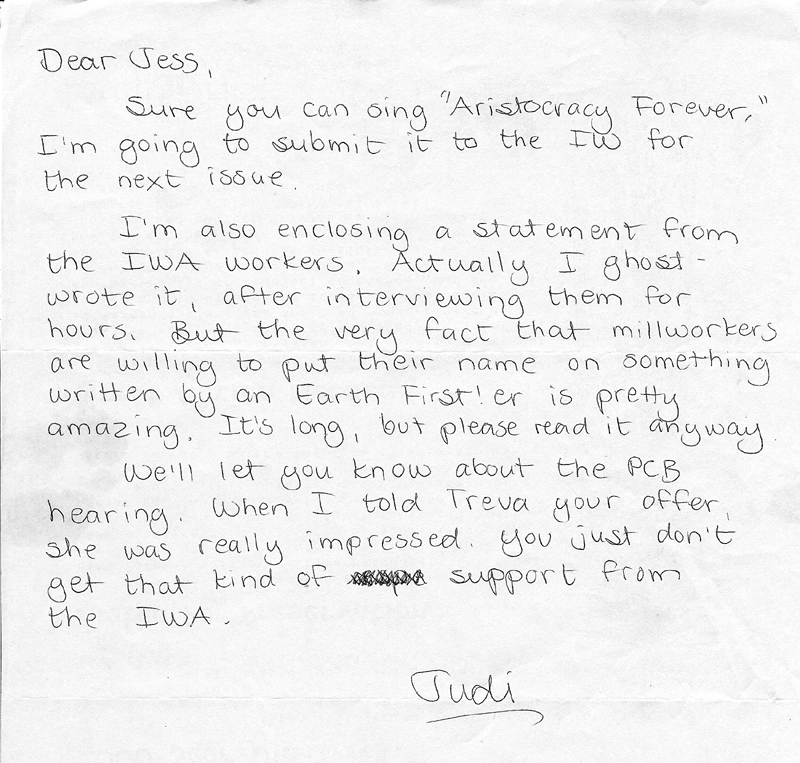 Dear Jess,
Sure you can sing "Aristocracy Forever."
I'm going to submit it to the IW for
the next issue.
I'm also enclosing a statement from
the IWA workers. Actually I ghost-
wrote it, after interviewing them for
hours. But the very fact that millworkers
are willing to put their name on something
written by an Earth First!er is pretty
amazing. It's long, but please read it anyway.
We'll let you know about the PCB
hearing. When I told Treva your offer,
she was really impressed. You just don't
get that kind of support from
the IWA.
Judi